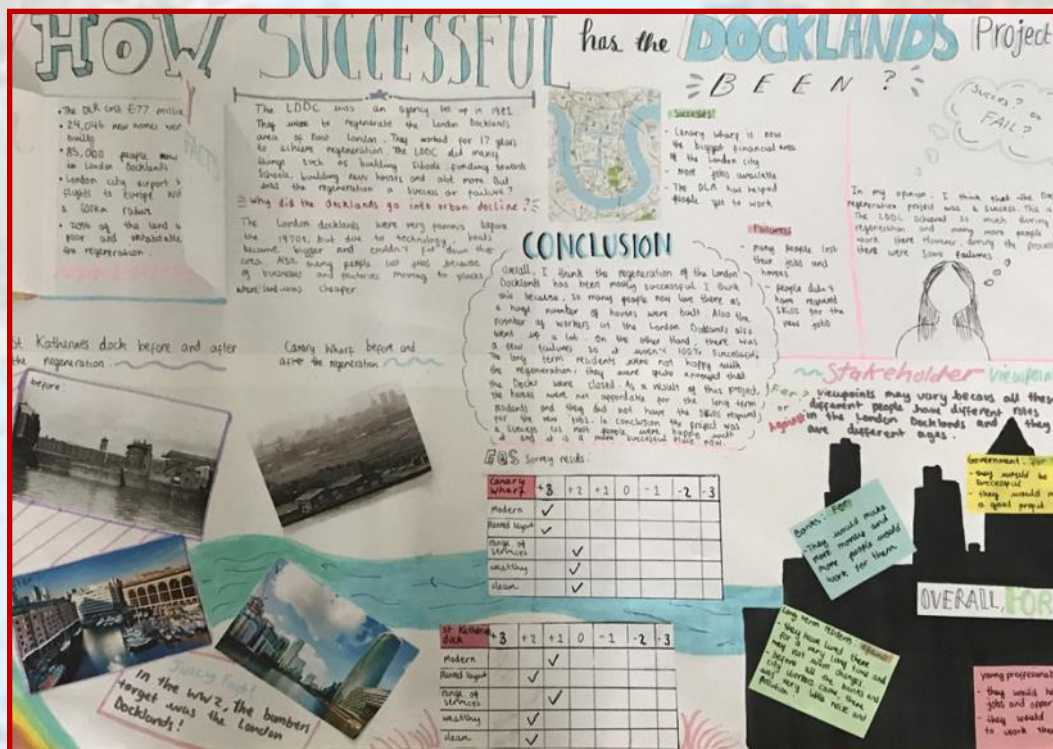 HOW SUCCESSFUL has the DOCKLANDS Project
BEEN?
• The DLR cost £77
• 24,046 new homes
built
• 85,000 people now
in London Docklands
• London city airport
flights to Europe
a radius
• 20% of the land
poor and
the regeneration.
FACTS
The LDDC was an agency set up in 1981.
They were to regenerate the London Docklands
area of East London. They worked for 17 years
to achieve regeneration. The LDDC did many
things such as building schools, funding towards
schools, building new houses and alot more. But
was the regeneration a success or failure?
Why did the docklands go into urban decline?
The London docklands were very famous before
the 1970s, but due to technology, boats
became bigger and couldn't fit down the
area. Also many people lost jobs because
of businesses and factories moving to places
where land was cheaper
Successes:
- Canary wharf is now
the biggest financial area
of the London city
- more jobs available
- The DLR has helped
people get to work
Failures
- many people lost
their jobs and
houses
- people didn't
have required
skills for the
new jobs
SUCCES? OR
FAIL?
In my opinion, I think that the
regeneration project was a success. This
The LDDC achieved so much during
regeneration and many more people
work there However, during the
there were some failures
CONCLUSION
Overall, I think the regeneration of the London
Docklands has been mostly successful. I think
this because, so many people now live there as
a huge number of houses were built. Also the
number of workers in the London Docklands also
went up a lot. On the other hand, there was
a few failures so it wasn't 100% successful.
The long term residents were not happy with
the regeneration; they were quite annoyed that
the Docks were closed. As a result of this project,
the houses were not affordable for the long term
residents and they did not have the skills required
for the new jobs. In conclusion the project was
a success as most people were happy with
it and it is a more successful place now.
St Katherines dock before and after
the regeneration
Canary Wharf before and
after the regeneration
before:
Juicy Fact!
In the WW2, the bombers
target was the London
Docklands!
EQS Survey results:
Canary wharf +3 +2 +1 0 -1 -2 -3
Modern ✓
Planned layout ✓
range of services ✓
wealthy ✓
clean ✓
St Katherine dock +3 +2 +1 0 -1 -2 -3
Modern ✓
Planned layout ✓
range of services ✓
wealthy ✓
clean ✓
Stakeholder viewpoint
For or Against?
viewpoints may vary becaus all these
different people have different roles
in the London Docklands and they
are different ages.
Government: For
- they would be
successful
- they would
a good project
Banks: FOR
- They would make
more money and
more people would
work for them
OVERALL, FOR
Long term resident: against
- they have lived there
for a very long time and
may not want changes
- before all the banks and
city workers came, there
was very little noise and
pollution
young proffesional
- they would
jobs and
- they would
to work